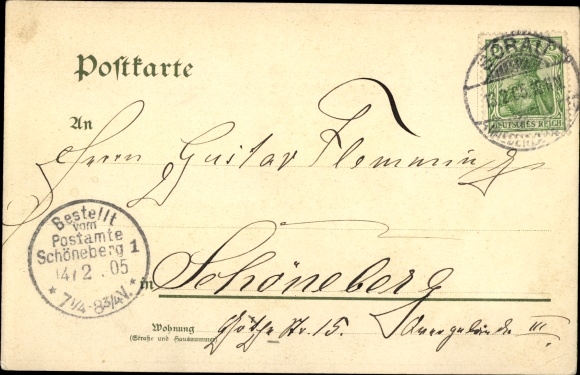 Postkarte
DEUTSCHES REICH
An
Herrn Gustav Flemming
Bestellt
vom
Postamte
Schöneberg 1
14/2 . 05
* 7 1/4 - 8 3/4 V. *
in Schöneberg
Wohnung
(Straße und Hausnummer)
Göthe Str. 15. III.